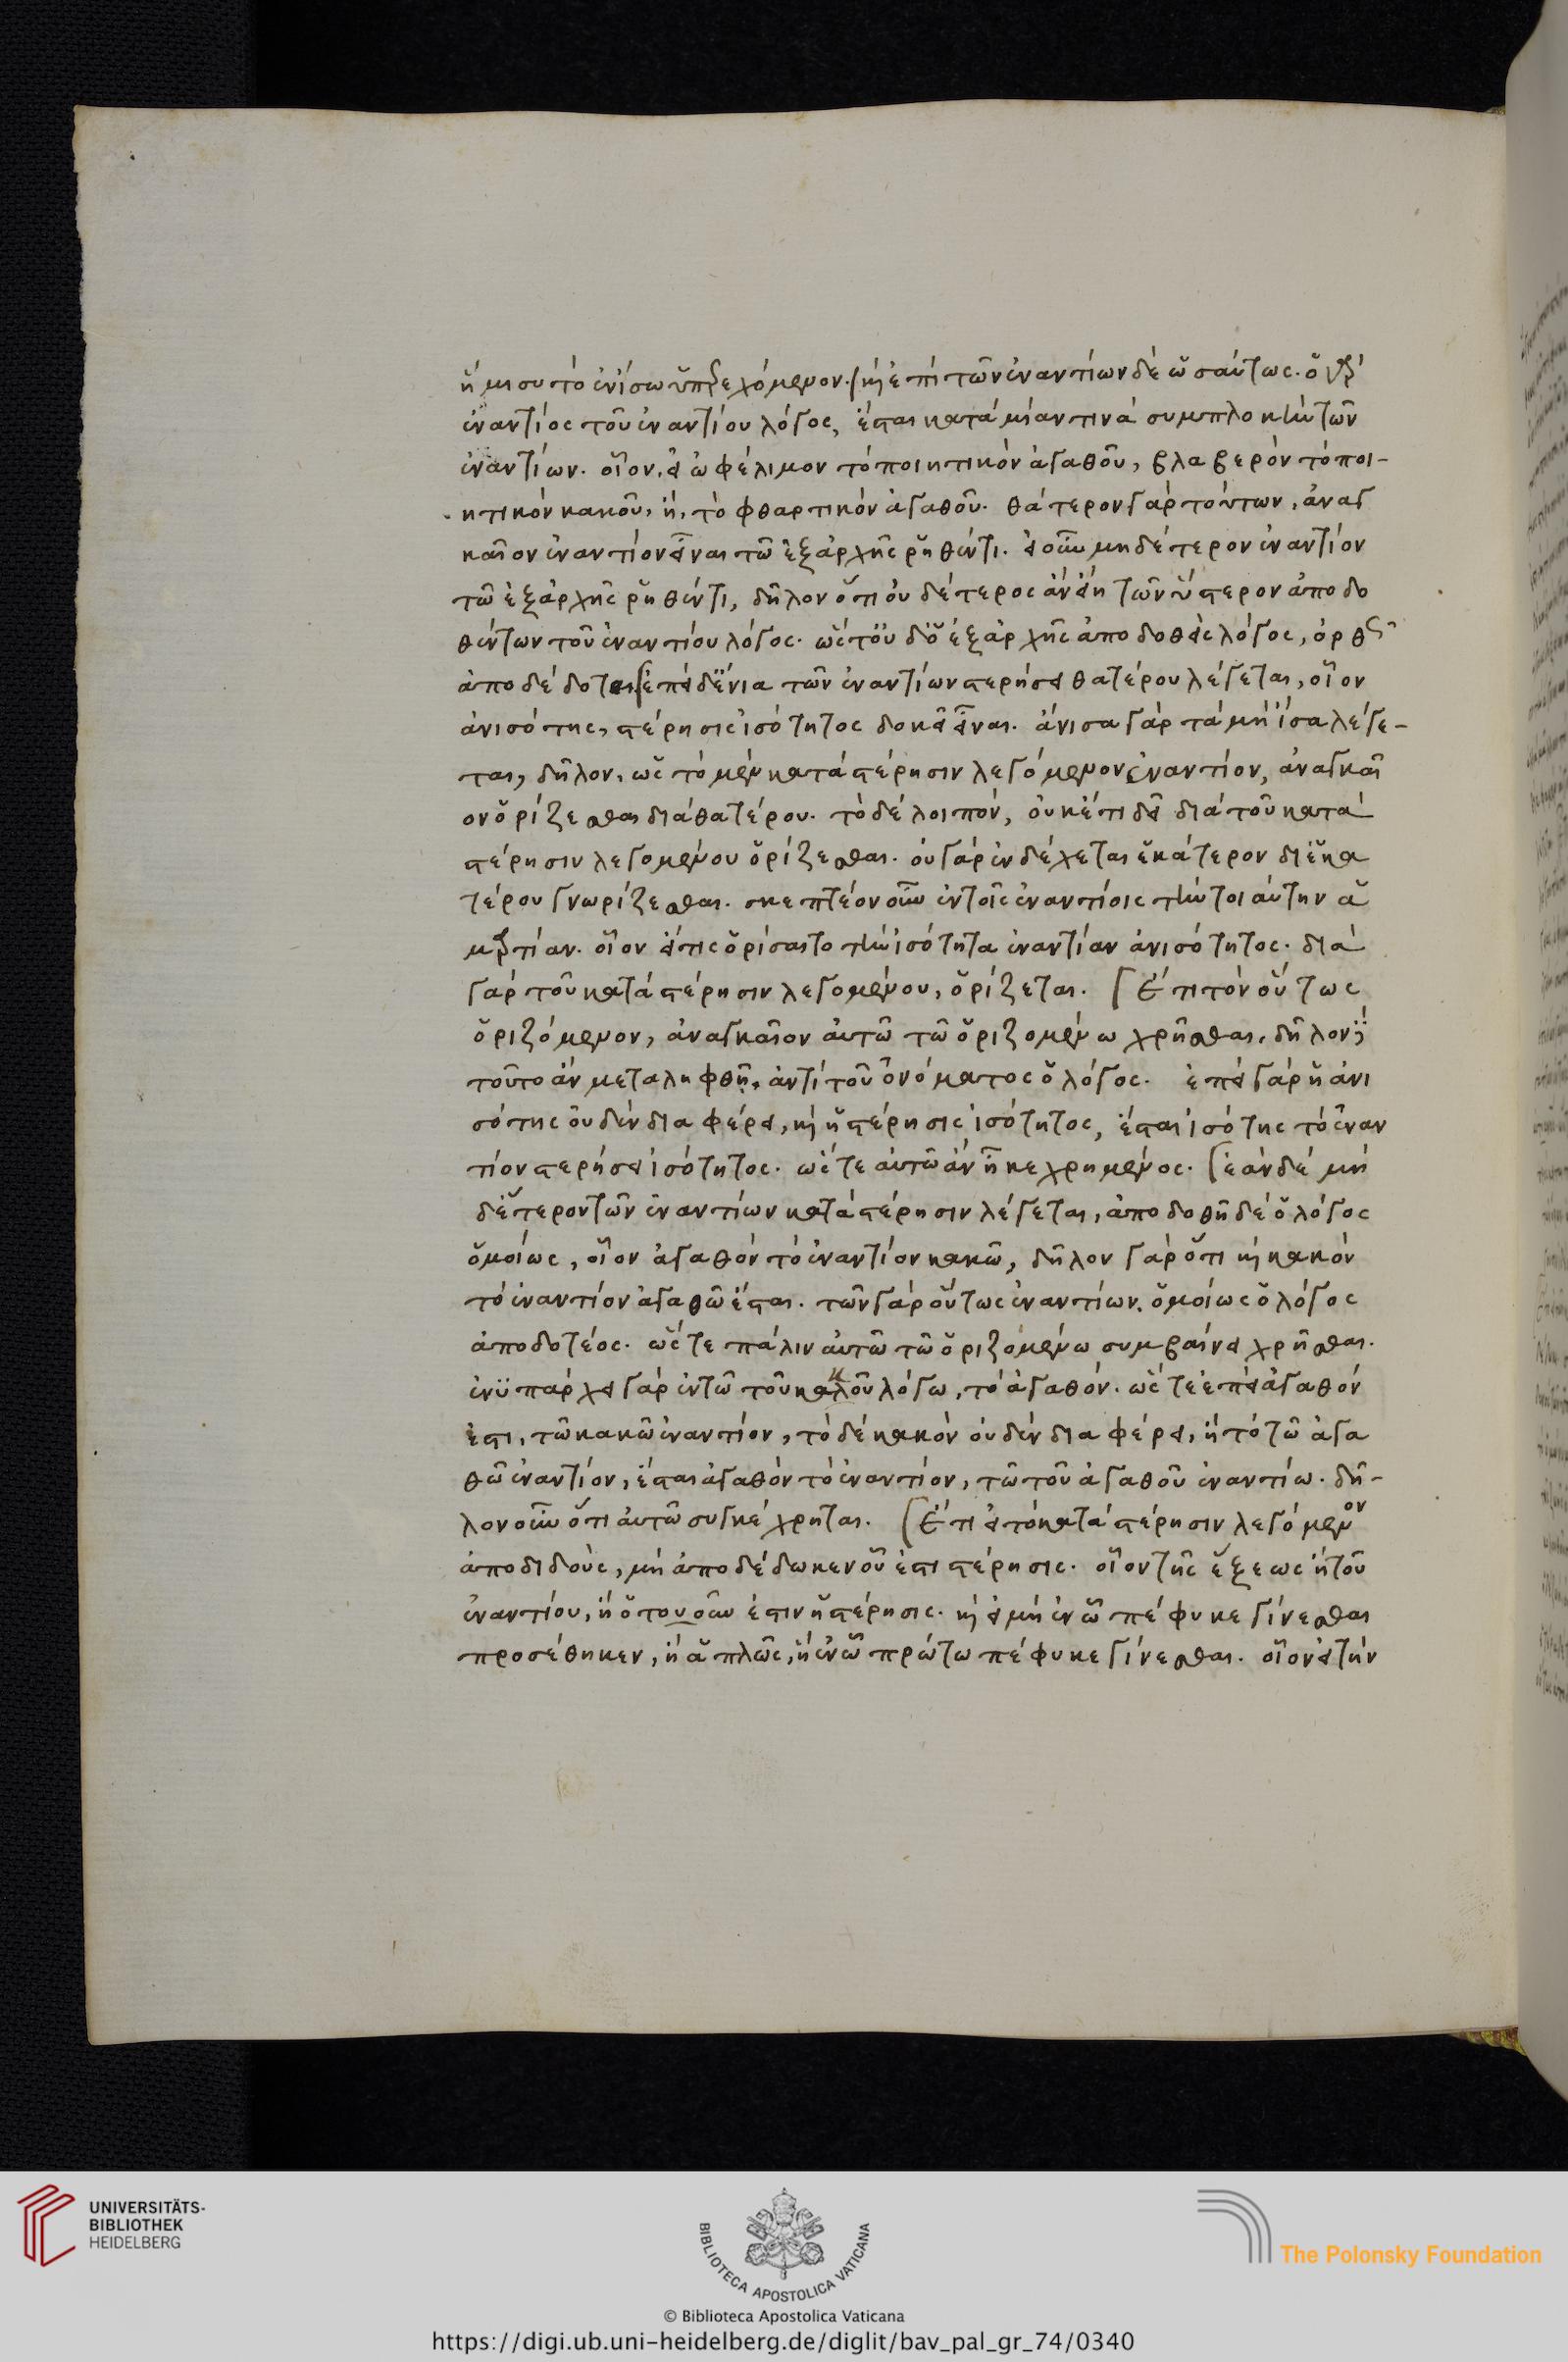 ἥμισυ τὸ ἐν ἴσω ὑπερεχόμενον. καὶ ἐπὶ τῶν ἐναντίων δὲ ὡσαύτως. ὁ γὰρ
ἐναντίος τοῦ ἐναντίου λόγος, ἔσται κατὰ μίαν τινὰ συμπλοκὴν τῶν
ἐναντίων. οἷον, εἰ ὠφέλιμον τὸ ποιητικὸν ἀγαθοῦ, βλαβερὸν τὸ ποι-
ητικὸν κακοῦ, ἢ, τὸ φθαρτικὸν ἀγαθοῦ. θάτερον γὰρ τούτων, ἀναγ
καῖον ἐναντίον εἶναι τῶ ἐξαρχῆς ῥηθέντι. εἰ οὖν μηδέτερον ἐναντίον
τῶ ἐξαρχῆς ῥηθέντι, δῆλον ὅτι οὐδέτερος ἂν εἴη τῶν ὕστερον ἀποδο
θέντων τοῦ ἐναντίου λόγος. ὥστ' οὐδ' ὁ ἐξαρχῆς ἀποδοθεὶς λόγος, ὀρθῶς
ἀποδέδοται ἐπεὶ δ' ἔνια τῶν ἐναντίων στερήσει θατέρου λέγεται, οἷον
ἀνισότης, στέρησις ἰσότητος δοκεῖ εἶναι. ἄνισα γὰρ τὰ μὴ ἴσα λέγε-
ται, δῆλον, ὡς τὸ μὲν κατὰ στέρησιν λεγόμενον ἐναντίον, ἀναγκαῖ
ον ὁρίζεσθαι διὰ θατέρου. τὸ δὲ λοιπὸν, οὐκέτι δεῖ διὰ τοῦ κατὰ
στέρησιν λεγομένου ὁρίζεσθαι. οὐ γὰρ ἐνδέχεται ἑκάτερον δι' ἑκα
τέρου γνωρίζεσθαι. σκεπτέον οὖν ἐν τοῖς ἐναντίοις τὴν τοιαύτην ἁ
μαρτίαν. οἷον εἴ τις ὁρίσαιτο τὴν ἰσότητα ἐναντίαν ἀνισότητος. διὰ
γὰρ τοῦ κατὰ στέρησιν λεγομένου, ὁρίζεται. Ἔτι τὸν οὕτως
ὁριζόμενον, ἀναγκαῖον αὐτῶ τῶ ὁριζομένω χρῆσθαι. δῆλον δὲ
τοῦτο ἂν μεταληφθῇ, ἀντὶ τοῦ ὀνόματος ὁ λόγος. ἐπεὶ γὰρ ἡ ἀνι
σότης οὐδὲν διαφέρει, καὶ ἡ στέρησις ἰσότητος, ἔσται ἰσότης τὸ ἐναν
τίον στερήσει ἰσότητος. ὥστε αὐτῶ ἂν ἦ κεχρημένος. ἐὰν δὲ μη
δέτερον τῶν ἐναντίων κατὰ στέρησιν λέγεται, ἀποδοθῇ δὲ ὁ λόγος
ὁμοίως, οἷον ἀγαθὸν τὸ ἐναντίον κακῶ, δῆλον γὰρ ὅτι καὶ κακὸν
τὸ ἐναντίον ἀγαθῶ ἔσται. τῶν γὰρ οὕτως ἐναντίων. ὁμοίως ὁ λόγος
ἀποδοτέος. ὥστε πάλιν αὐτῶ τῶ ὁριζομένω συμβαίνει χρῆσθαι.
ἐνυπάρχει γὰρ ἐν τῶ τοῦ κακοῦ λόγω, τὸ ἀγαθόν. ὥστε ἐπεὶ ἀγαθόν
ἐστι, τῶ κακῶ ἐναντίον, τὸ δὲ κακὸν οὐδὲν διαφέρει, ἢ τὸ τῶ ἀγα
θῶ ἐναντίον, ἔσται ἀγαθὸν τὸ ἐναντίον, τῶ τοῦ ἀγαθοῦ ἐναντίω. δῆ-
λον οὖν ὅτι αὐτῶ συγκέχρηται. Ἔτι εἰ τὸ κατὰ στέρησιν λεγόμενον
ἀποδιδοὺς, μὴ ἀποδέδωκεν οὗ ἐστι στέρησις. οἷον τῆς ἕξεως ἢ τοῦ
ἐναντίου, ἢ ὅτου οὖν ἐστιν ἡ στέρησις. καὶ εἰ μὴ ἐν ὧ πέφυκε γίνεσθαι
προσέθηκεν, ἢ ἁπλῶς, ἢ ἐν ὧ πρώτω πέφυκε γίνεσθαι. οἷον εἰ τὴν
UNIVERSITÄTS-
BIBLIOTHEK
HEIDELBERG
BIBLIOTECA APOSTOLICA VATICANA
The Polonsky Foundation
© Biblioteca Apostolica Vaticana
https://digi.ub.uni-heidelberg.de/diglit/bav_pal_gr_74/0340